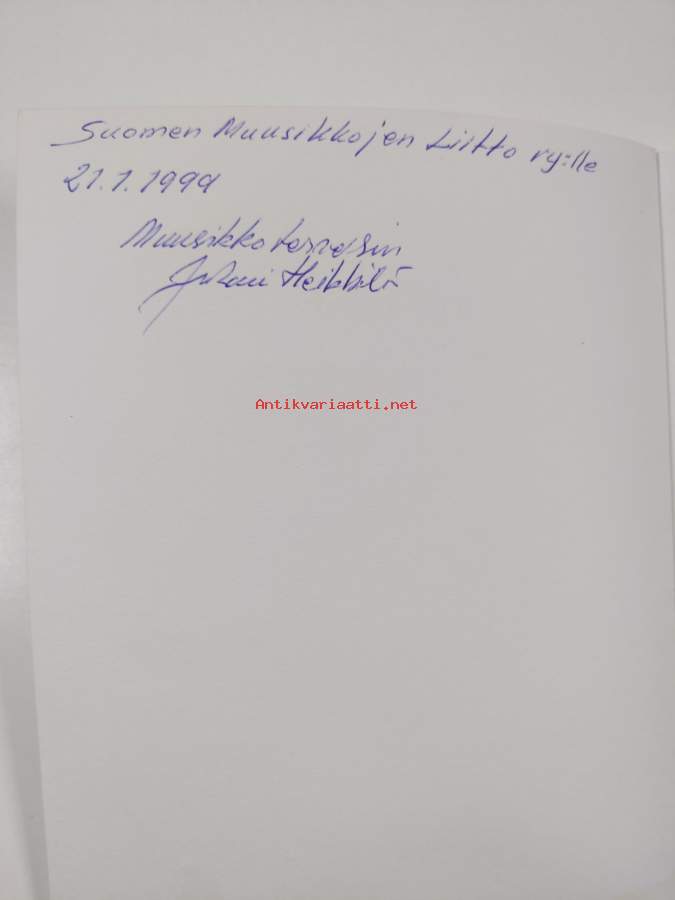 Suomen Muusikkojen Liitto ry:lle
21.1.1999
Muusikkoterveisin
Juhani Heikkilä
Antikvariaatti.net